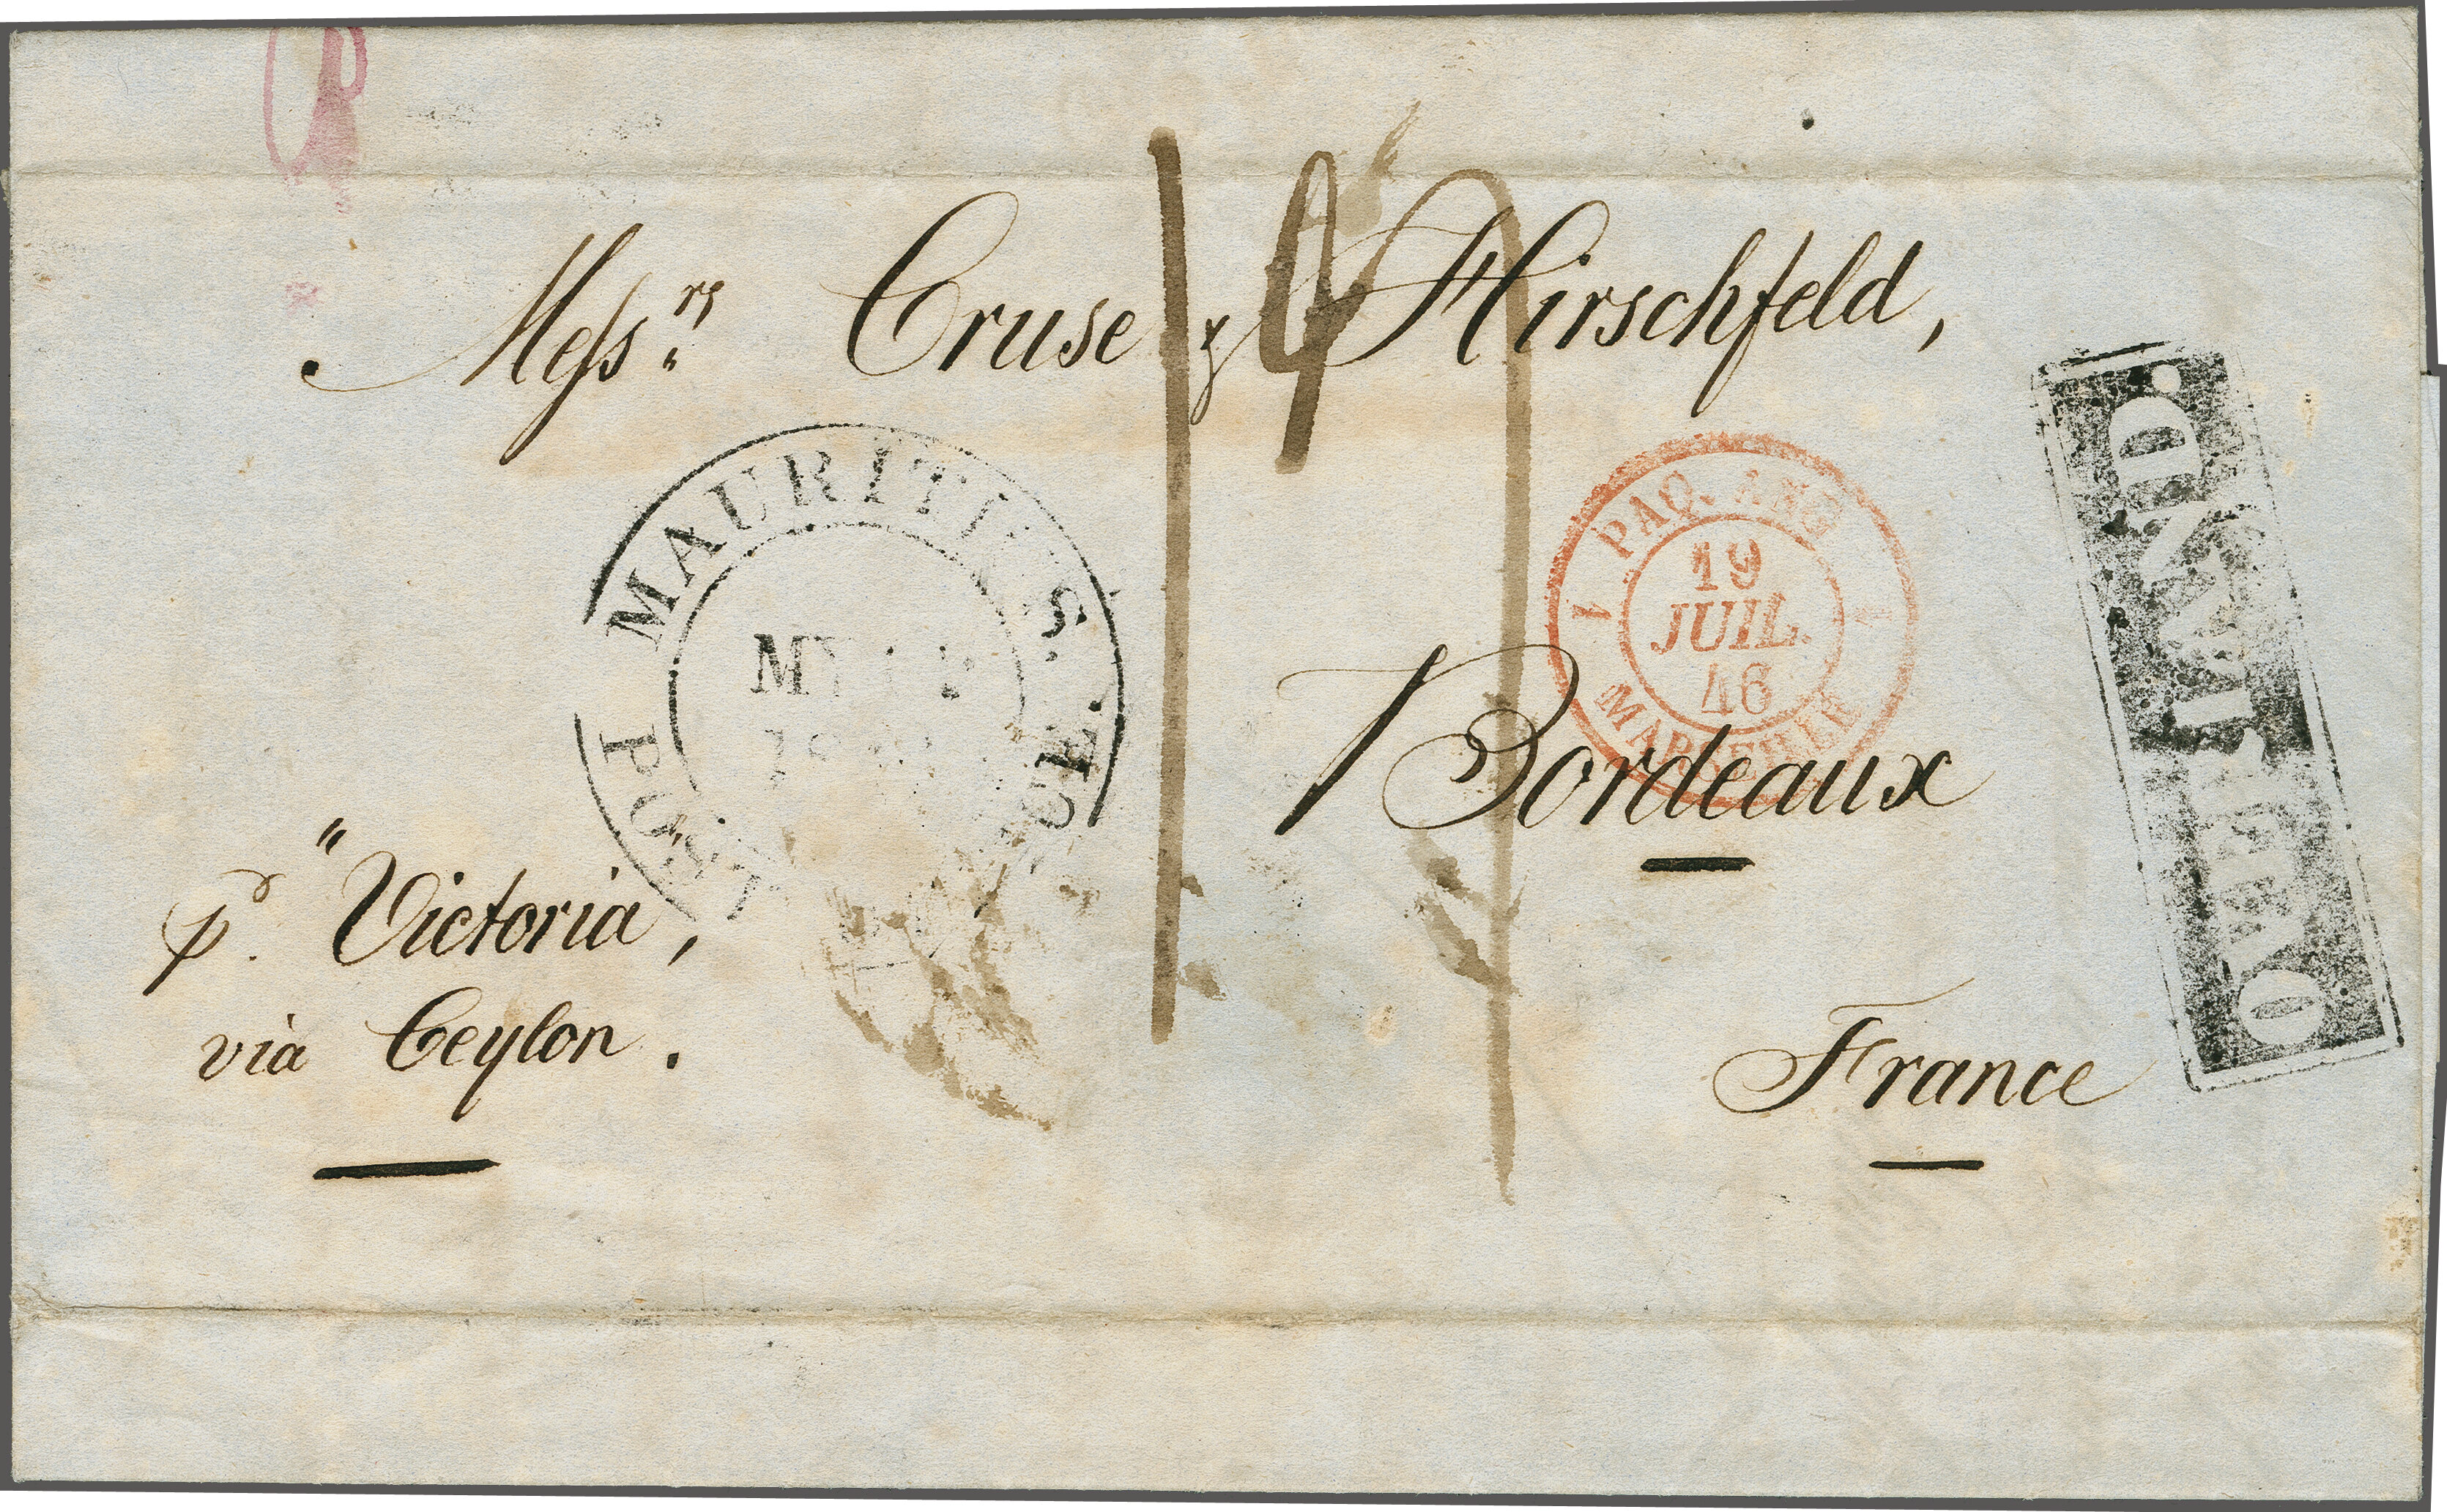 Messrs Cruse & Hirschfeld,
MAURITIUS.
POST OFFICE.
PAQ. ANG
19
JUIL.
46
MARSEILLE
OVERLAND.
Bordeaux
pr "Victoria",
via Ceylon.
France